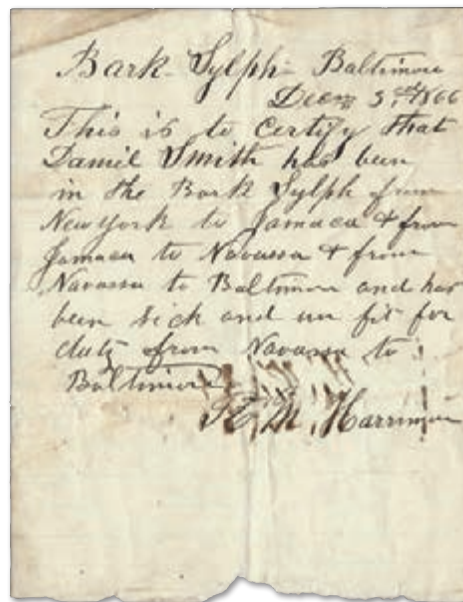 Bark Sylph Baltimore
Decm 3rd 1866
This is to Certify that
Daniel Smith has been
in the Bark Sylph from
New york to Jamaica & from
Jamaca to Navassa & from
Navassa to Baltimore and has
been sick and un fit for
duty from Navassa to
Baltimore
M. Harriman